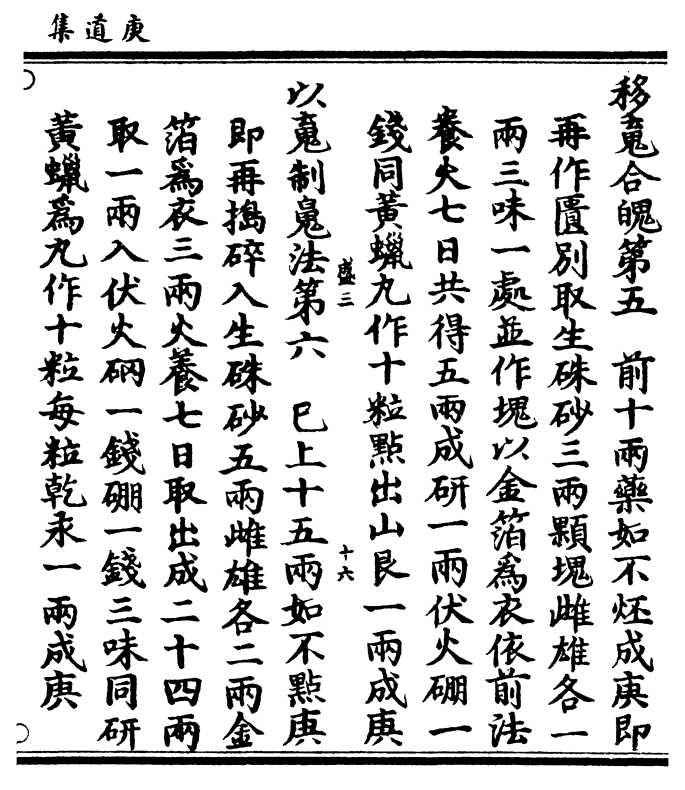 庚道集
移䰟合魄第五　前十兩藥如不烾成庚即
再作匱別取生硃砂三兩顆塊雌雄各一
兩三味一處並作塊以金箔爲衣依前法
養火七日共得五兩成研一兩伏火硼一
錢同黃蠟丸作十粒點出山艮一兩成庚
盛三
十六
以䰟制䰟法第六　巳上十五兩如不點庚
即再搗碎入生硃砂五兩雌雄各二兩金
箔爲衣三兩火養七日取出成二十四兩
取一兩入伏火硇一錢硼一錢三味同研
黃蠟爲丸作十粒每粒乾汞一兩成庚